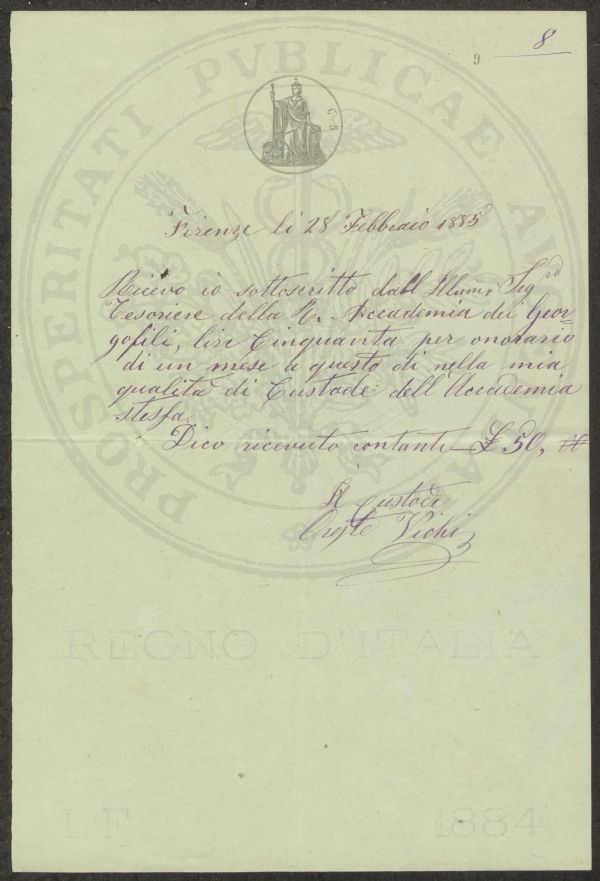 9
8
PROSPERITATI PVBLICAE AV
C. 5.
Firenze li 28 Febbraio 1885
Ricevo io sottoscritto dall Illum. Sigrd
Tesoriere della R. Accademia dei Geor-
gofili, lire Cinquanta per onorario
di un mese a questo dì nella mia
qualità di Custode dell'Accademia
stessa
Dico ricevuto contanti £ 50,
Il Custode
Oreste Vichi
REGNO D'ITALIA
LF 1884